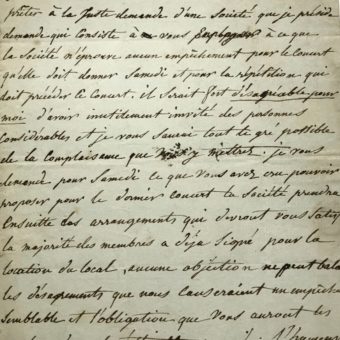 prêter à la Juste demande d'une Société que je préside
demande qui consiste à vous à ce que
la Société n'éprouve aucun empêchement pour le Concert
qu'elle doit donner Samedi et pour la répétition qui
doit précéder le Concert. il serait fort désagréable pour
moi d'avoir inutilement invité des personnes
Considérables et je vous saurai tout le gré possible
de la Complaisance que y mettrez. je vous
demande pour Samedi ce que vous avez cru pouvoir
proposer pour le dernier Concert la Société prendra
Ensuitte des arrangements qui devront vous
la majorité des membres a déja signé pour la
location du local, aucune objection ne peut
les désagréments que nous causeraient un
Semblable et l'obligation que vous auront les